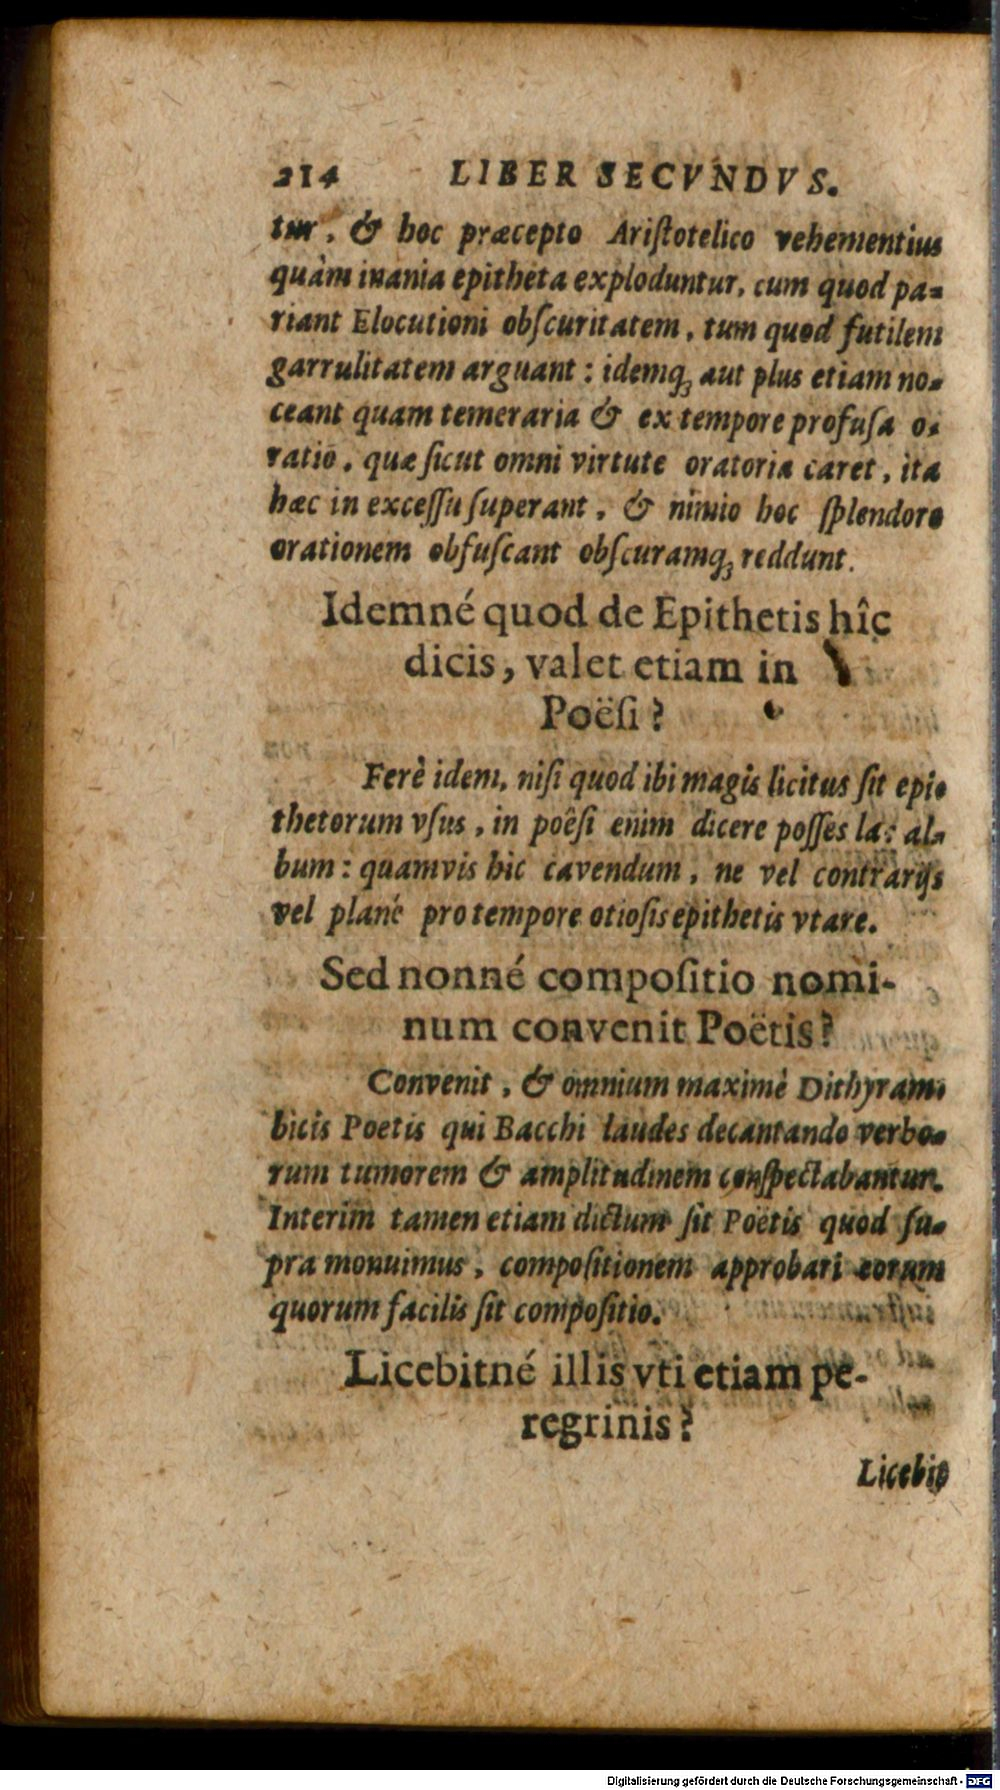 214 LIBER SECVNDVS.
tur, & hoc præcepto Aristotelico vehementius
quàm inania epitheta exploduntur, cum quod pa-
riant Elocutioni obſcuritatem, tum quod futilem
garrulitatem arguant: idemq́ꝫ aut plus etiam no-
ceant quam temeraria & ex tempore profuſa o-
ratio, quæ ſicut omni virtute oratoria caret, ita
hæc in exceſſu ſuperant, & nimio hoc ſplendore
orationem obfuſcant obſcuramqꝫ reddunt.
Idemné quod de Epithetis hîc
dicis, valet etiam in
Poëſi?
Ferè idem, niſi quod ibi magis licitus ſit epi-
thetorum vſus, in poêſi enim dicere poſſes lac al-
bum: quamvis hic cavendum, ne vel contrarijs
vel plané pro tempore otioſis epithetis vtare.
Sed nonné compoſitio nomi-
num convenit Poëtis?
Convenit, & omnium maximè Dithyram-
bicis Poetis qui Bacchi laudes decantando verbo-
rum tumorem & amplitudinem conſpectabantur.
Interim tamen etiam dictum ſit Poëtis quod ſu-
pra monuimus, compoſitionem approbari eorum
quorum facilis ſit compoſitio.
Licebitné illis vti etiam pe-
regrinis?
Licebit
Digitalisierung gefördert durch die Deutsche Forschungsgemeinschaft - DFG